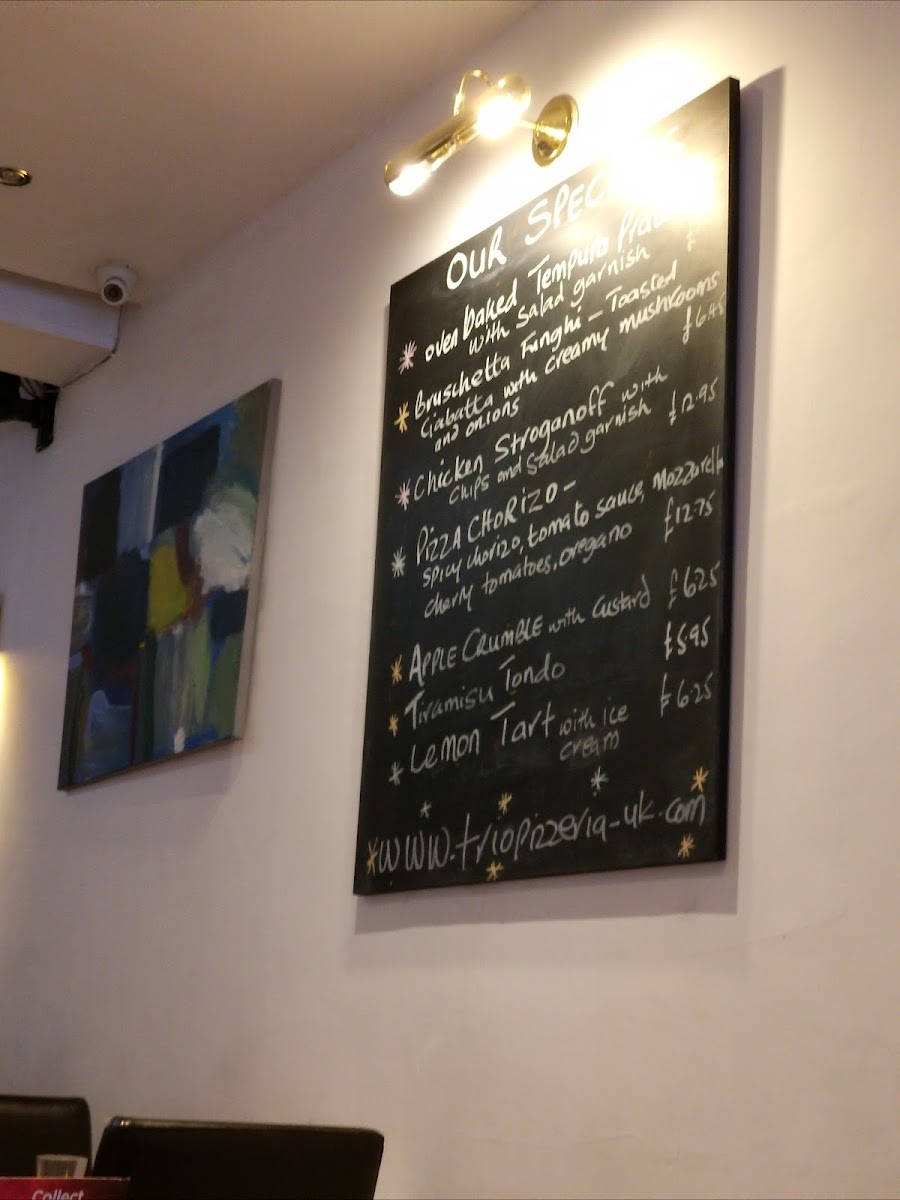 OUR SPEC
oven baked Tempura
with salad garnish £
Bruschetta Funghi - Toasted
Ciabatta with creamy mushrooms
and onions £6.45
Chicken Stroganoff with
chips and salad garnish £12.95
PIZZA CHORIZO -
spicy chorizo, tomato sauce, Mozzarella
cherry tomatoes, oregano £12.75
APPLE CRUMBLE with Custard £6.25
Tiramisu Tondo £5.95
Lemon Tart with ice £6.25
cream
www.triopizzeria-uk.com
Collect